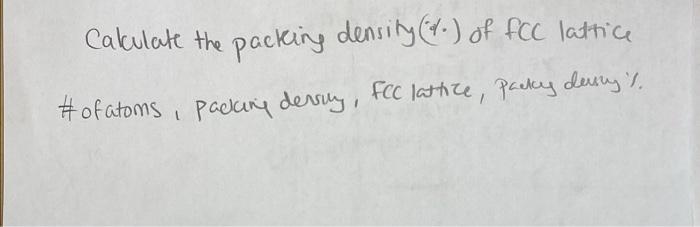 Calculate the packing density (%) of fCC lattice
# of atoms, packing density, FCC lattice, packing density %.